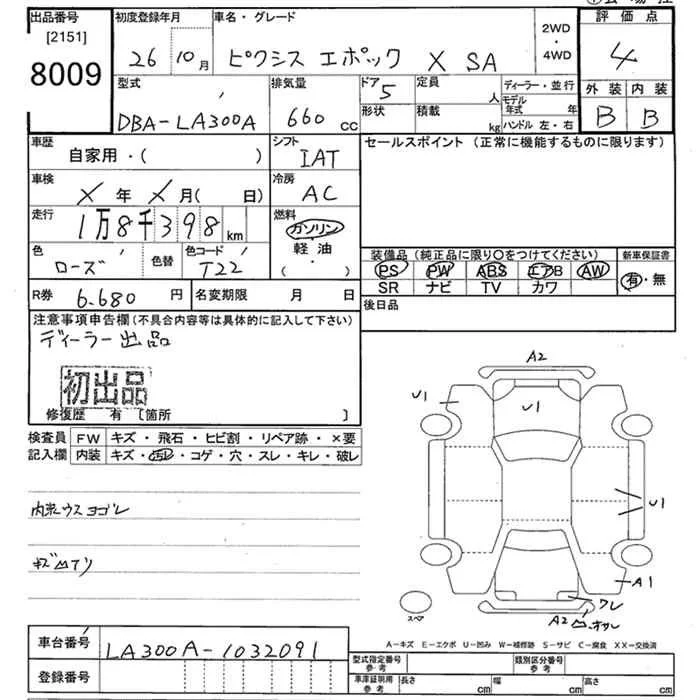 出品番号 初度登録年月 車名・グレード 2WD・4WD 評価点
[2151]
8009 26 10月 ピクシス エポック X SA 4
型式 排気量 ドア 5 定員 人 ディーラー・並行 外装 内装
DBA-LA300A 660 cc 形状 積載 kg モデル年式 年 ハンドル 左・右 B B
車歴 自家用・( ) シフト IAT セールスポイント (正常に機能するものに限ります)
車検 X 年 X 月( 日) 冷房 AC
走行 1万8千398 km 燃料 ガソリン・軽油・( )
色 ローズ 色替 色コード T22
装備品 (純正品に限り○をつけてください) 新車保証書
PS PW ABS エアB AW 有・無
SR ナビ TV カワ
R券 6.680 円 名変期限 月 日 後日品
注意事項申告欄(不具合内容等は具体的に記入して下さい)
ディーラー出品
初出品
修復歴 有 [箇所 ]
検査員 FW キズ・飛石・ヒビ割・リペア跡・×要
記入欄 内装 キズ・汚レ・コゲ・穴・スレ・キレ・破レ
内装ウスヨゴレ
A2
U1
U1
U1
A1
ワレ
A2
スペア
A-キズ E-エクボ U-凹み W-補修跡 S-サビ C-腐食 XX-交換済
車台番号 LA300A-1032091
登録番号
型式指定番号 参考 類別区分番号 参考
車庫証明用 参考 長さ cm 幅 cm 高さ cm